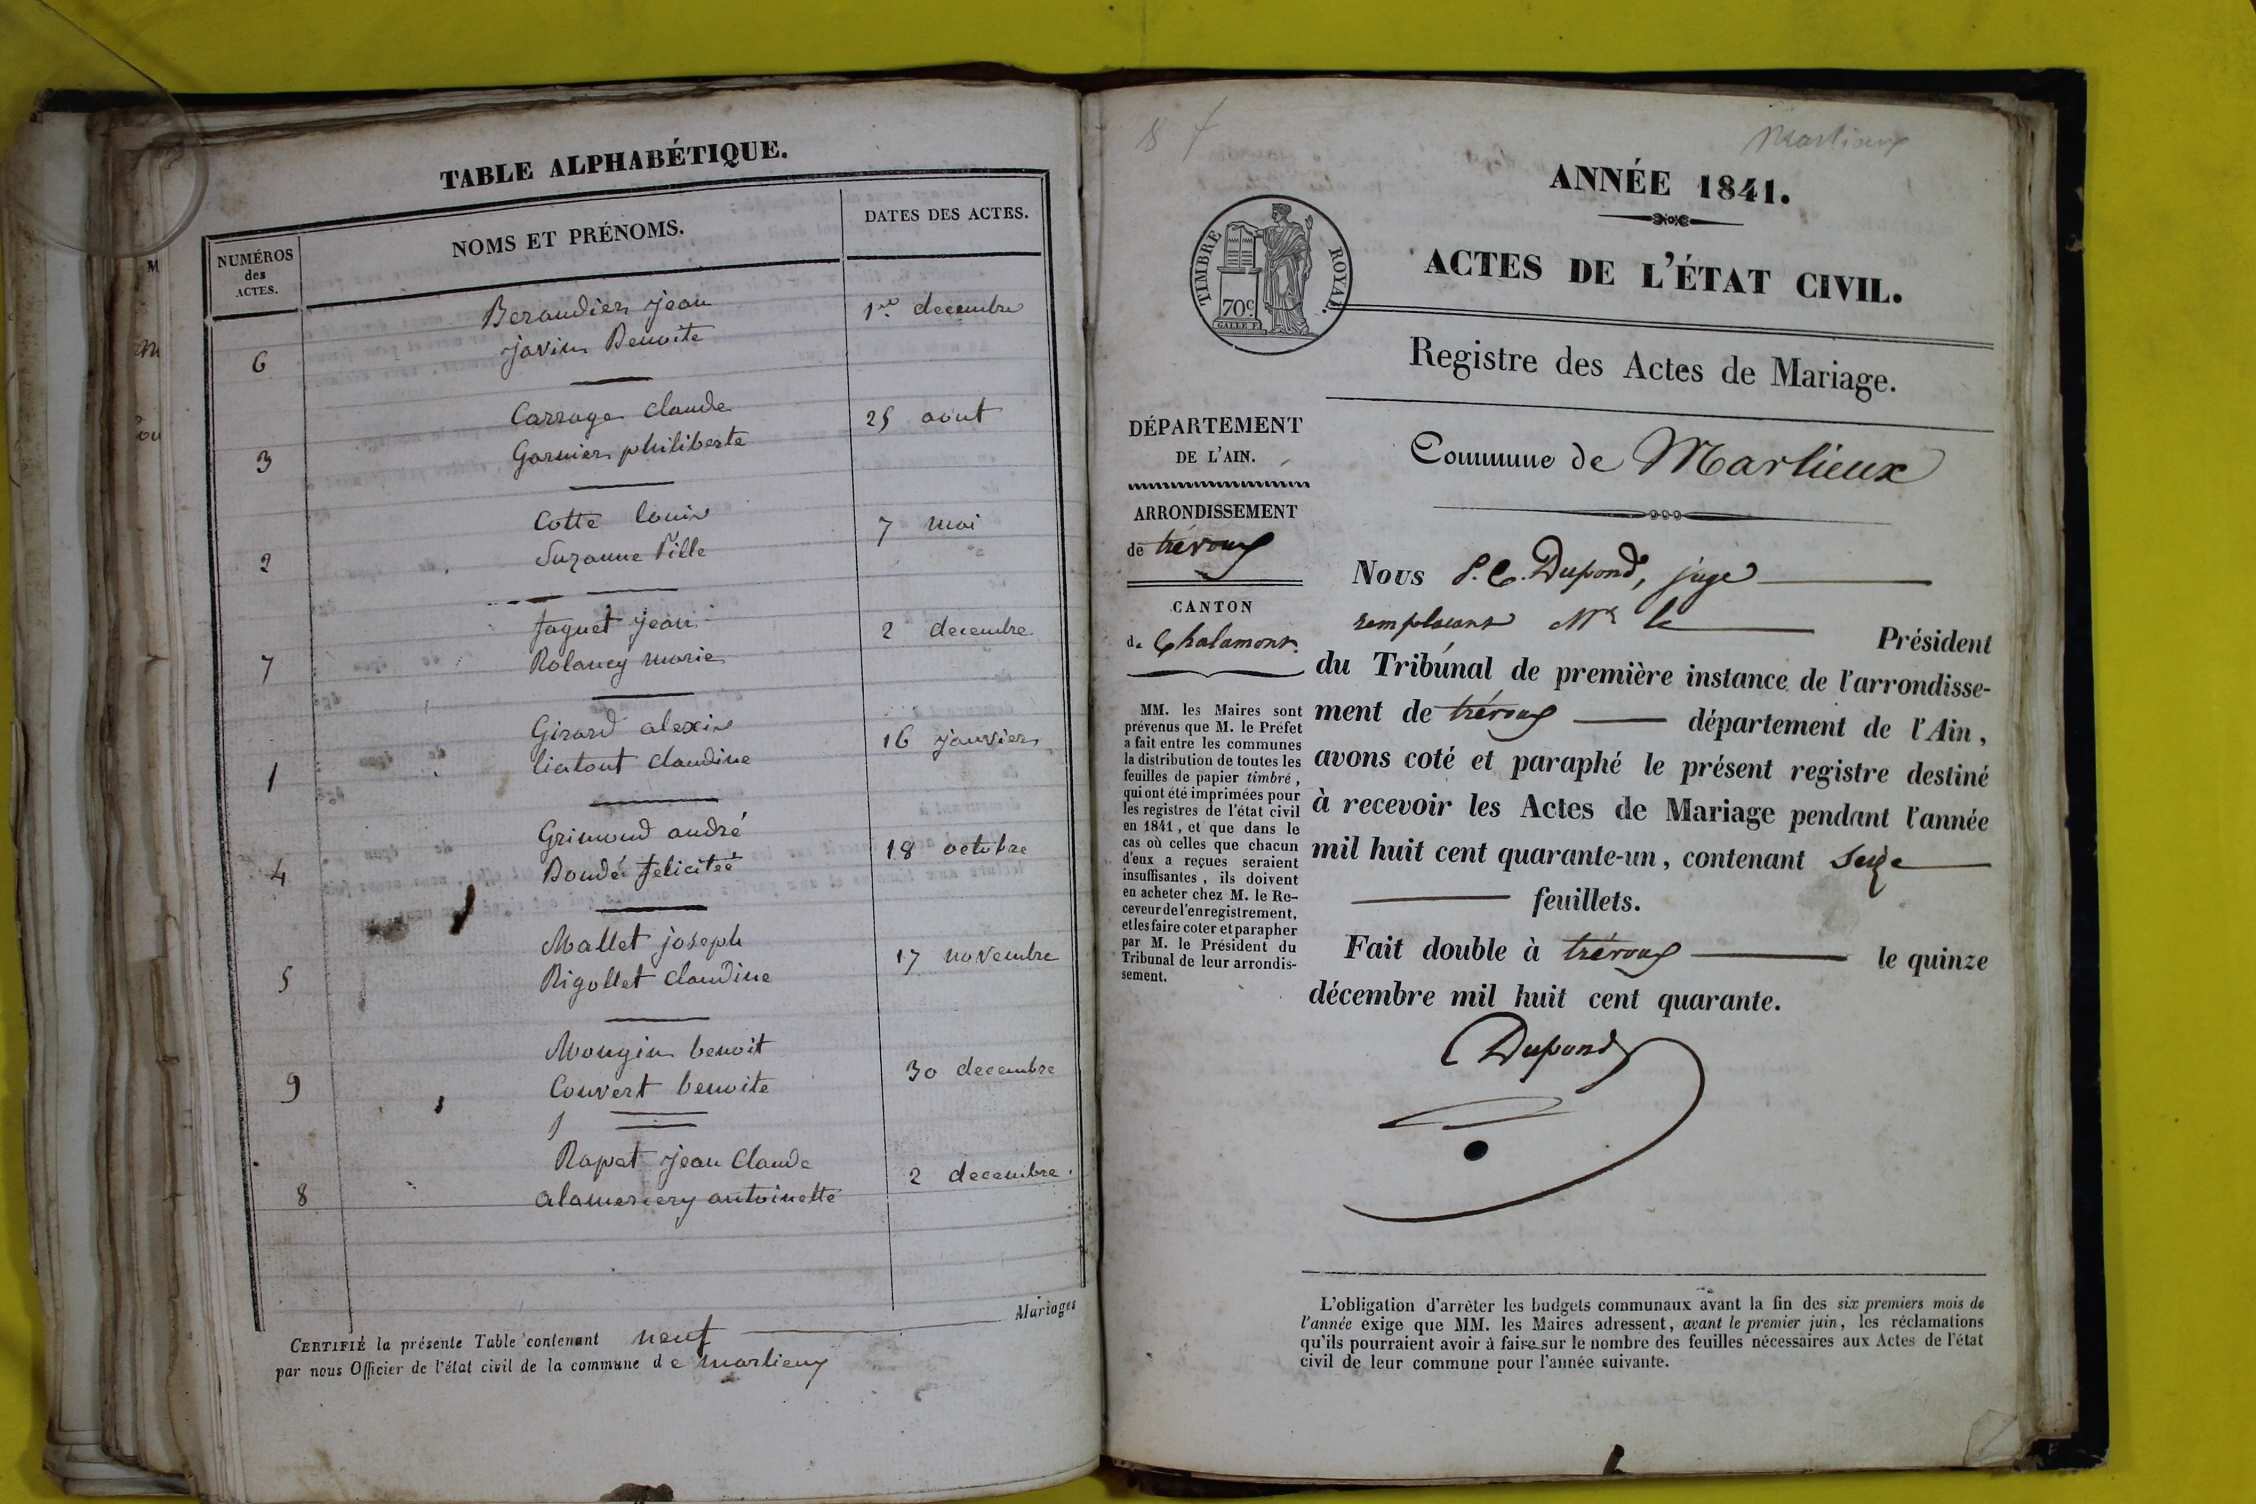 TABLE ALPHABÉTIQUE.
NUMÉROS
des
ACTES.
NOMS ET PRÉNOMS.
DATES DES ACTES.
Beraudier jean
1re decembre
6
javin Benoite
Carrage claude
25 aout
3
Garnier philiberte
Cotte louis
7 mai
2
Suzanne Pille
faguet jean
2 decembre
7
Rolancy marie
Girard alexis
16 janvier
1
liatout claudine
Grimaud andré
18 octobre
4
Boudé felicité
Mallet joseph
17 novembre
5
Rigollet claudine
Mougin benoit
30 decembre
9
Couvert benoite
Rapet jean Claude
2 decembre
8
alamercery antoinette
Mariages
CERTIFIÉ la présente Table contenant neuf
par nous Officier de l'état civil de la commune de marlieux
18
Marlieux
ANNÉE 1841.
TIMBRE ROYAL.
70c
GALLE F.
ACTES DE L'ÉTAT CIVIL.
Registre des Actes de Mariage.
Commune de Marlieux
DÉPARTEMENT
DE L'AIN.
ARRONDISSEMENT
de trévoux
CANTON
de Chalamont.
MM. les Maires sont
prévenus que M. le Préfet
a fait entre les communes
la distribution de toutes les
feuilles de papier timbré,
qui ont été imprimées pour
les registres de l'état civil
en 1841, et que dans le
cas où celles que chacun
d'eux a reçues seraient
insuffisantes, ils doivent
en acheter chez M. le Re-
ceveur de l'enregistrement,
et les faire coter et parapher
par M. le Président du
Tribunal de leur arrondis-
sement.
Nous P. C. Dupond, juge
remplaçant Mr le Président
du Tribunal de première instance de l'arrondisse-
ment de trévoux département de l'Ain,
avons coté et paraphé le présent registre destiné
à recevoir les Actes de Mariage pendant l'année
mil huit cent quarante-un, contenant seize
feuillets.
Fait double à trévoux le quinze
décembre mil huit cent quarante.
Dupond
L'obligation d'arrêter les budgets communaux avant la fin des six premiers mois de
l'année exige que MM. les Maires adressent, avant le premier juin, les réclamations
qu'ils pourraient avoir à faire sur le nombre des feuilles nécessaires aux Actes de l'état
civil de leur commune pour l'année suivante.